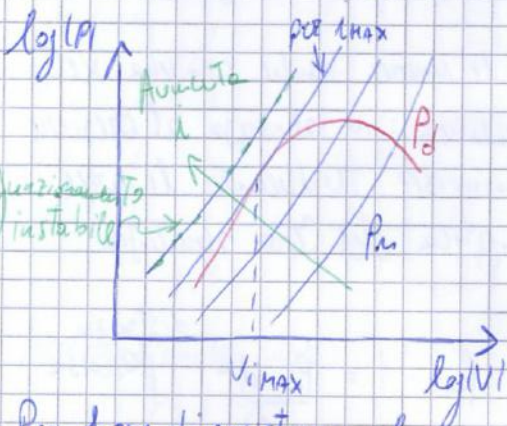 log|P|
per iMAX
Aumenta
i
Funzionamento
instabile
Pd
Pm
ViMAX
log|V|